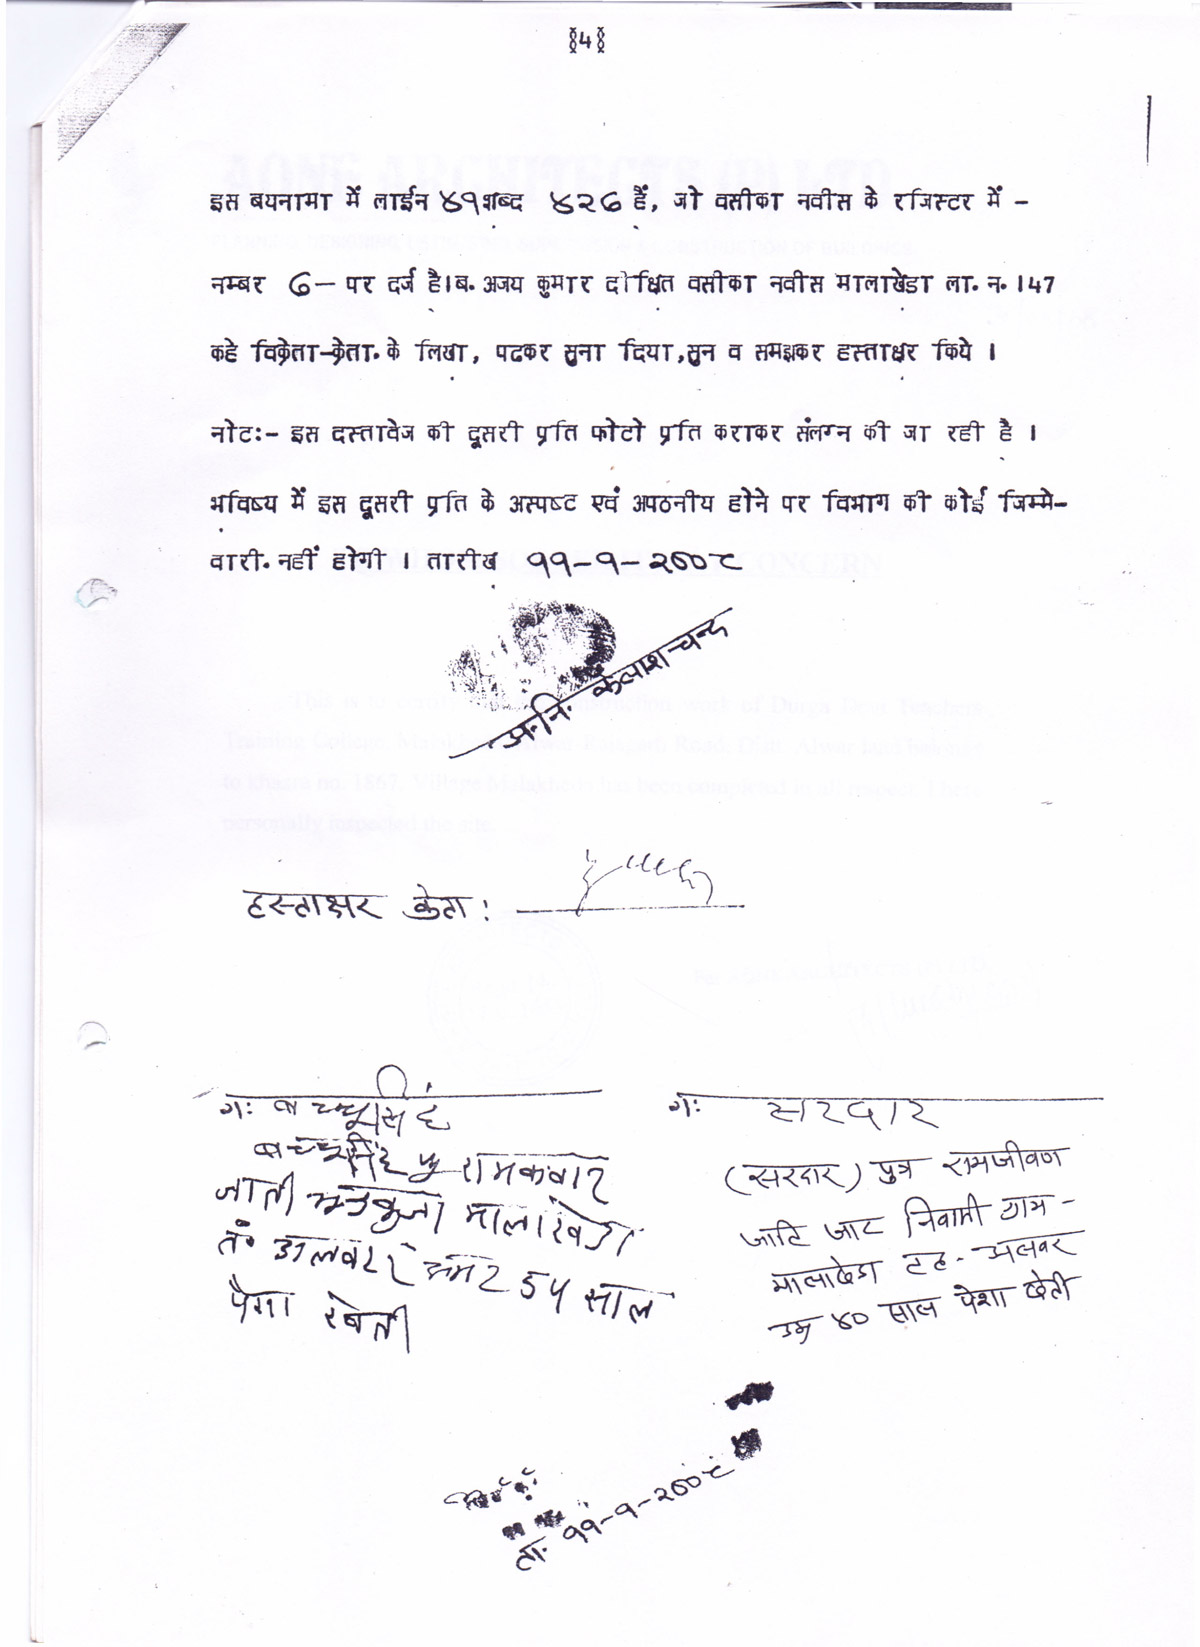 ४4४
इस बयनामा में लाईन ४१ शब्द ४२७ हैं, जो वसीका नवीस के रजिस्टर में -
नम्बर ७ - पर दर्ज है।ब. अजय कुमार दीक्षित वसीका नवीस मालाखेडा ला. न. 147
कहे विक्रेता-क्रेता.के लिखा, पढकर सुना दिया,सुन व समझकर हस्ताक्षर किये ।
नोटः- इस दस्तावेज की दूसरी प्रति फोटो प्रति कराकर संलग्न की जा रही है ।
भविष्य में इस दूसरी प्रति के अस्पष्ट एवं अपठनीय होने पर विभाग की कोई जिम्मे-
वारी.नहीं होगी । तारीख ११-१-२००८
अ.नि. कैलाश चन्द
हस्ताक्षर क्रेता :
गः बच्चूसिंह
बच्चूसिंह पु रामकवार
जाती मालाखेडा
त. अलवर उमर 54 साल
पैशा खेती
गः सरदार
(सरदार) पुत्र रामजीवण
जाति जाट निवासी ग्राम -
मालाखेडा तह - अलवर
उम्र ४० साल पेशा खेती
ता. ११-१-२००८